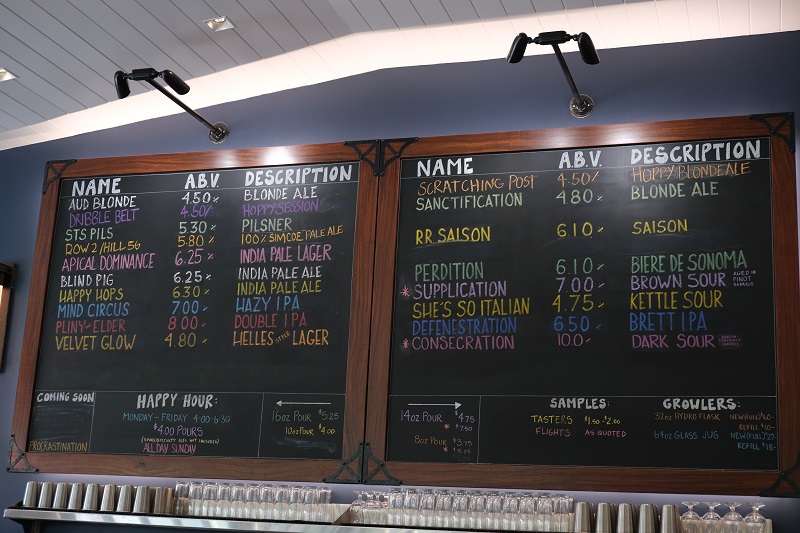 NAME A.B.V. DESCRIPTION
AUD BLONDE 4.50% BLONDE ALE
DRIBBLE BELT 4.50% HOPPY SESSION
STS PILS 5.30% PILSNER
ROW 2/HILL 56 5.80% 100% SIMCOE PALE ALE
APICAL DOMINANCE 6.25% INDIA PALE LAGER
BLIND PIG 6.25% INDIA PALE ALE
HAPPY HOPS 6.30% INDIA PALE ALE
MIND CIRCUS 7.00% HAZY IPA
PLINY-ELDER 8.00% DOUBLE IPA
VELVET GLOW 4.80% HELLES STYLE LAGER
COMING SOON
PROCRASTINATION
HAPPY HOUR:
MONDAY-FRIDAY 4:00-6:30
$4.00 POURS
ALL DAY SUNDAY
16oz POUR $5.25
10oz POUR $4.00
NAME A.B.V. DESCRIPTION
SCRATCHING POST 4.50% HOPPY BLONDE ALE
SANCTIFICATION 4.80% BLONDE ALE
RR SAISON 6.10% SAISON
PERDITION 6.10% BIERE DE SONOMA
* SUPPLICATION 7.00% BROWN SOUR AGED IN PINOT BARRELS
SHE'S SO ITALIAN 4.75% KETTLE SOUR
DEFENESTRATION 6.50% BRETT IPA
* CONSECRATION 10.0% DARK SOUR
14oz POUR $4.75
* $7.50
8oz POUR $3.75
* $5.25
SAMPLES:
TASTERS $1.50-$2.00
FLIGHTS AS QUOTED
GROWLERS:
32oz HYDRO FLASK NEW(FULL) $60-
REFILL $10-
64oz GLASS JUG NEW(FULL) $27-
REFILL $18-